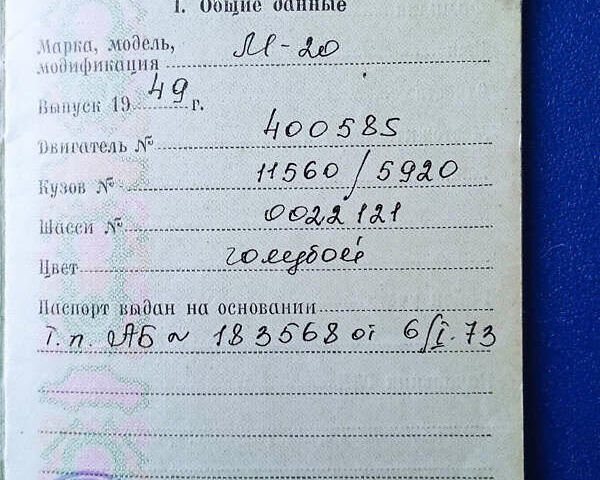 I. Общие данные
Марка, модель, модификация М-20
Выпуск 1949 г.
Двигатель № 400585
Кузов № 11560/5920
Шасси № 0022121
Цвет голубой
Паспорт выдан на основании
Т.п. АБ № 183568 от 6/I.73